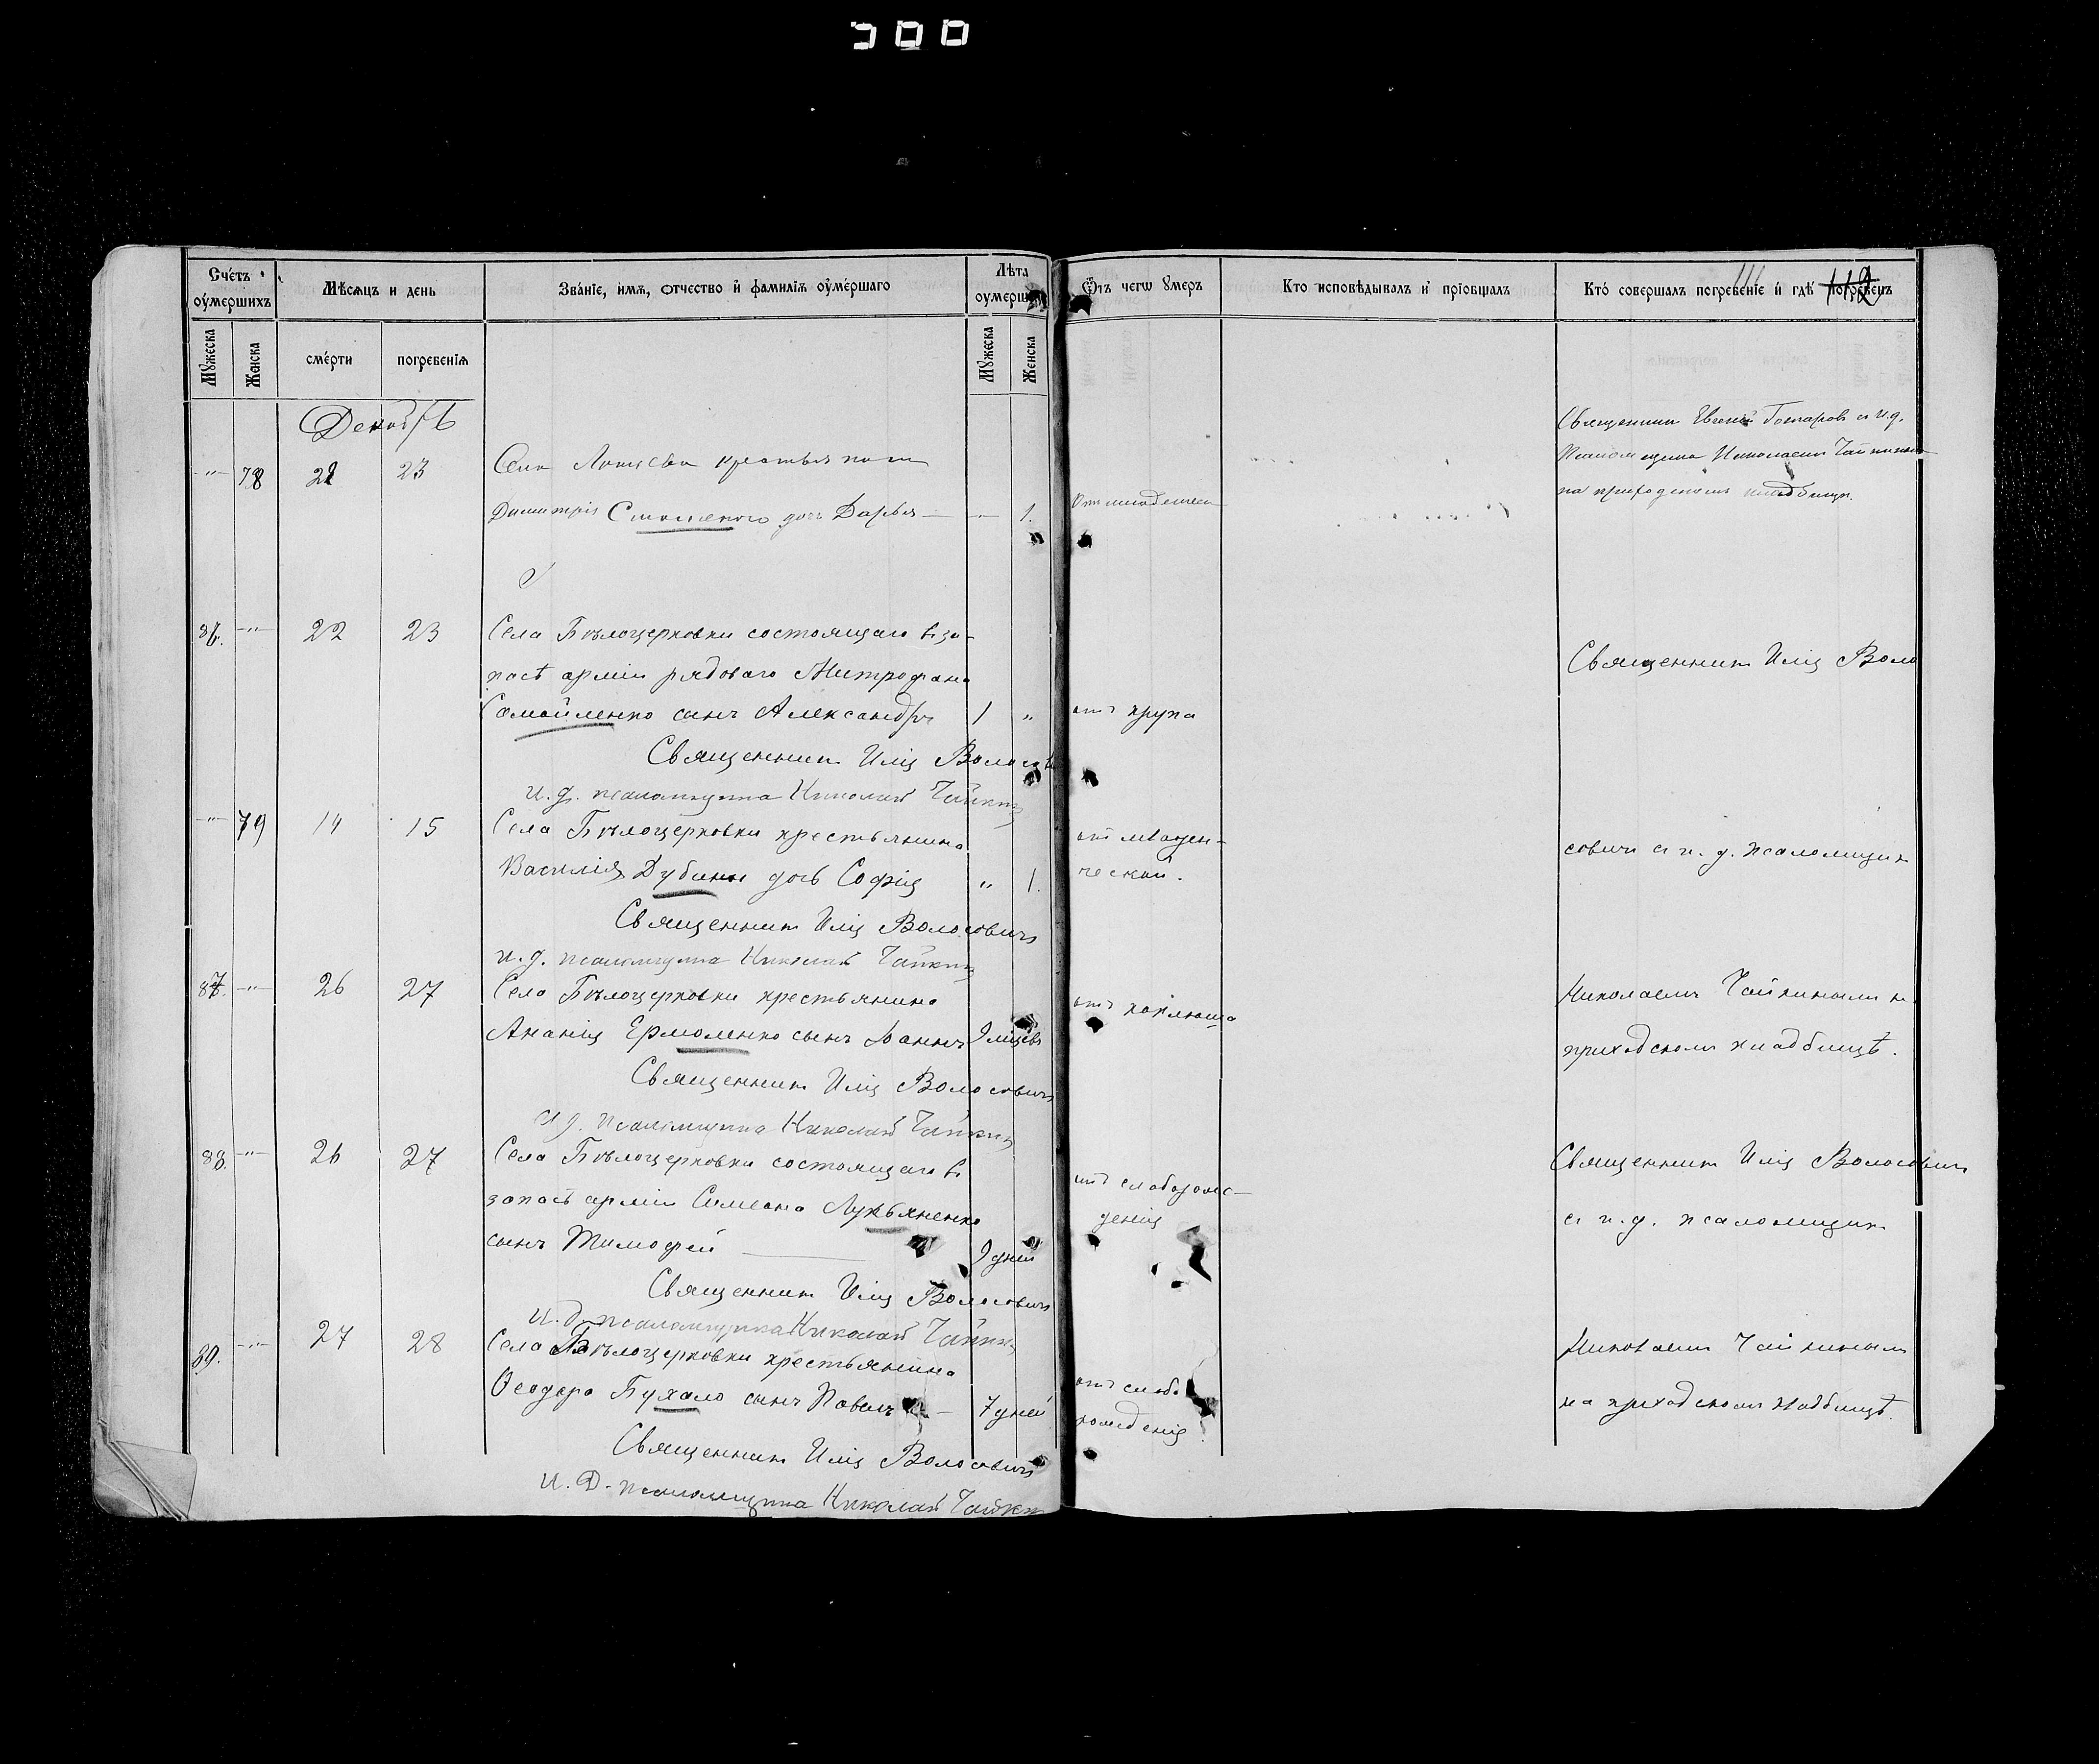 300
Счетъ оумершихъ
Мѣсяцъ и день
Званіе, имя, отчество и фамилія оумершаго
Лѣта
Отъ чегѡ умеръ
Кто исповѣдывалъ и пріобщалъ
Кто совершалъ погребеніе и гдѣ погребенъ
111
112
Мужеска
Женска
смерти
погребенія
Мужеска
Женска
Декабрь
-"- 78 21 23
крестьянина
Димитрія дочь Дарья — 1.
Священник Евгеній с и. д.
псаломщика Николаемъ Чайкинымъ
на приходскомъ кладбищѣ.
86. -"- 22 23 Села Бѣлоцерковки состоящаго въ за-
пасѣ арміи рядоваго Митрофана
Самойленко сынъ Александръ 1 " отъ крупа
Священникъ Илія Воло
Священникъ Илія Волосов
и. д. псаломщика Николай Чайкинъ
-"- 79 14 15 Села Бѣлоцерковки крестьянина
Василія Дубины дочь Софія " 1.
от младен-
ческой.
совичъ съ и. д. псаломщик
Священникъ Илія Волосовичъ
и. д. псаломщика Николай Чайкинъ
87. -"- 26 27 Села Бѣлоцерковки крестьянина
Ананія Ермоленко сынъ Іоаннъ 9 мѣсяцевъ
отъ коклюша
Николаемъ Чайкинымъ на
приходскомъ кладбищѣ.
Священникъ Илія Волосовичъ
и д. псаломщика Николай Чайкинъ
88. -"- 26 27 Села Бѣлоцерковки состоящаго въ
запасѣ арміи Симеона Лукьяненко
сынъ Тимофей — 9 дней
отъ слаборож-
денія
Священникъ Илія Волосовичъ
съ и. д. псаломщик
Священникъ Илія Волосовичъ
и. д. псаломщика Николай Чайкинъ
89. -"- 27 28 Села Бѣлоцерковки крестьянина
Ѳеодора Бухало сынъ Павелъ — 7 дней
отъ слабо
рожденія
Николаемъ Чайкинымъ
на приходскомъ кладбищѣ.
Священникъ Илія Волосовичъ
И. Д. псаломщика Николай Чайкин